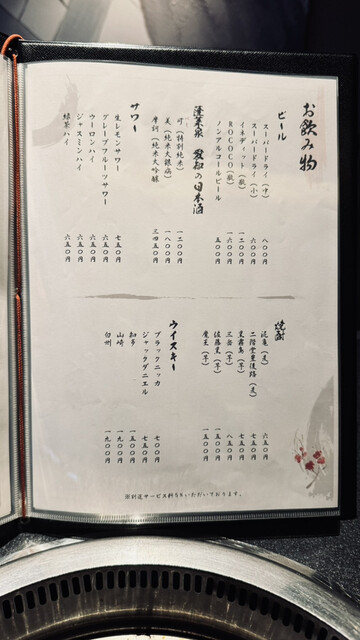 お飲み物
ビール
スーパードライ（中） 八〇〇円
スーパードライ（小） 六〇〇円
イネディット（瓶） 一二〇〇円
ROCOCO（瓶） 一六〇〇円
ノンアルコールビール 五〇〇円
蓬莱泉 愛知の日本酒
可（特別純米） 一二〇〇円
美（純米大吟醸） 一八〇〇円
摩訶（純米大吟醸） 三四五〇円
サワー
生レモンサワー 七五〇円
グレープフルーツサワー 六五〇円
ウーロンハイ 六五〇円
ジャスミンハイ 六五〇円
緑茶ハイ 六五〇円
焼酎
泥亀（麦） 六五〇円
二階堂吉四六（麦） 七五〇円
黒霧島（芋） 七五〇円
三岳（芋） 八五〇円
佐藤黒（芋） 一五〇〇円
魔王（芋） 一五〇〇円
ウイスキー
ブラックニッカ 七〇〇円
ジャックダニエル 七五〇円
知多 一五〇〇円
山崎 一九〇〇円
白州 一九〇〇円
※別途サービス料5%いただいております。